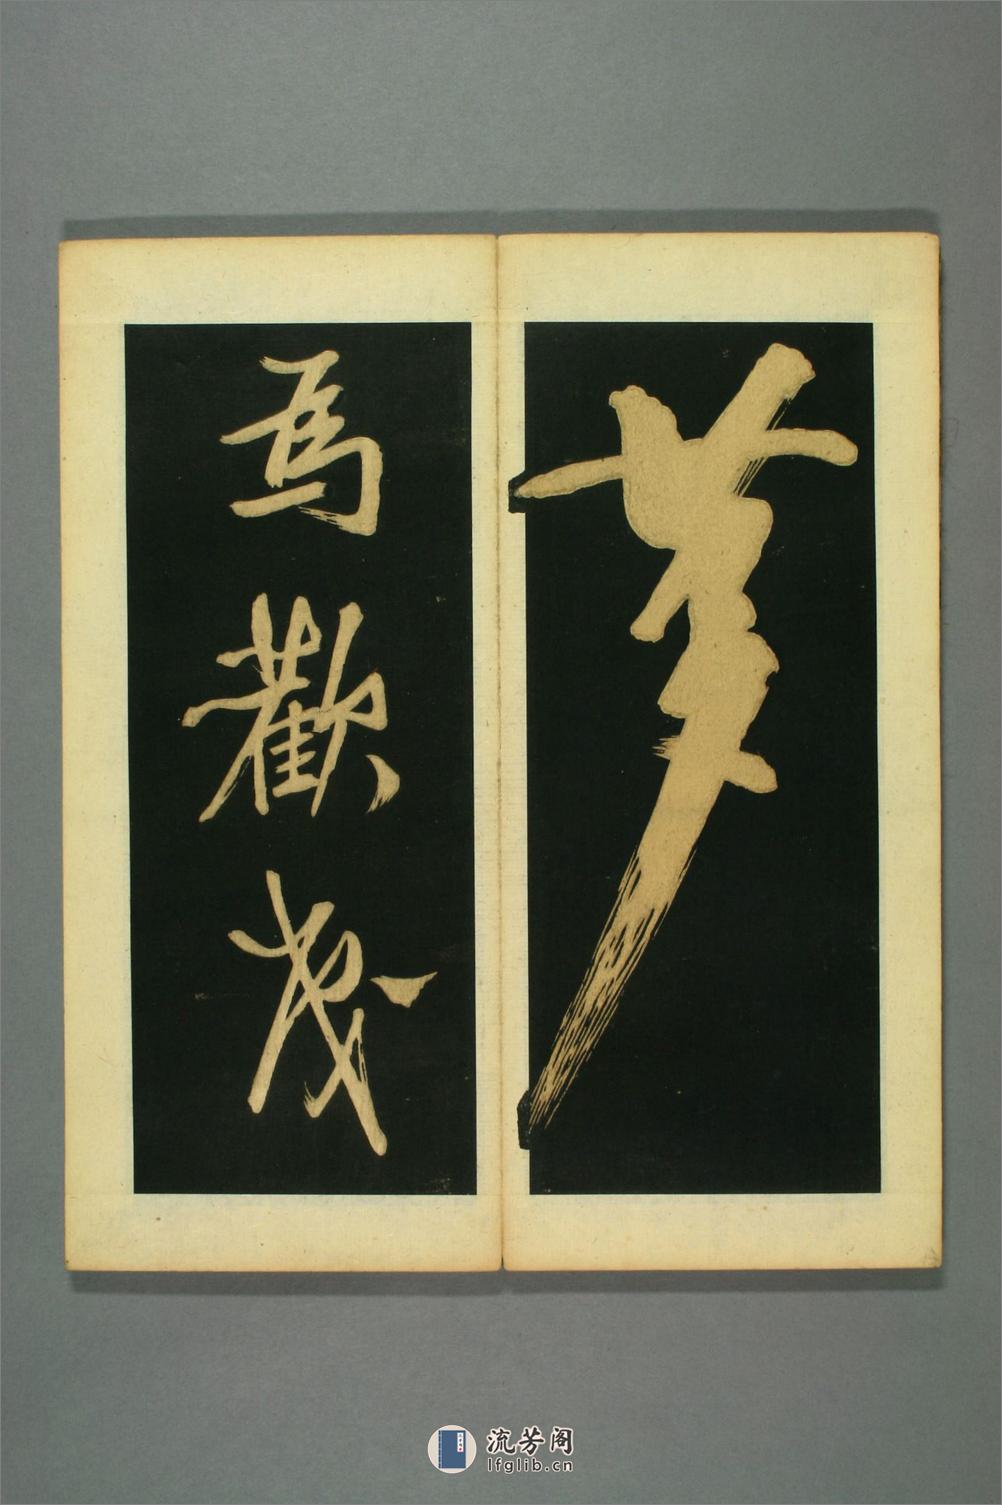 夢
為歡幾
流芳阁
lfglib.cn